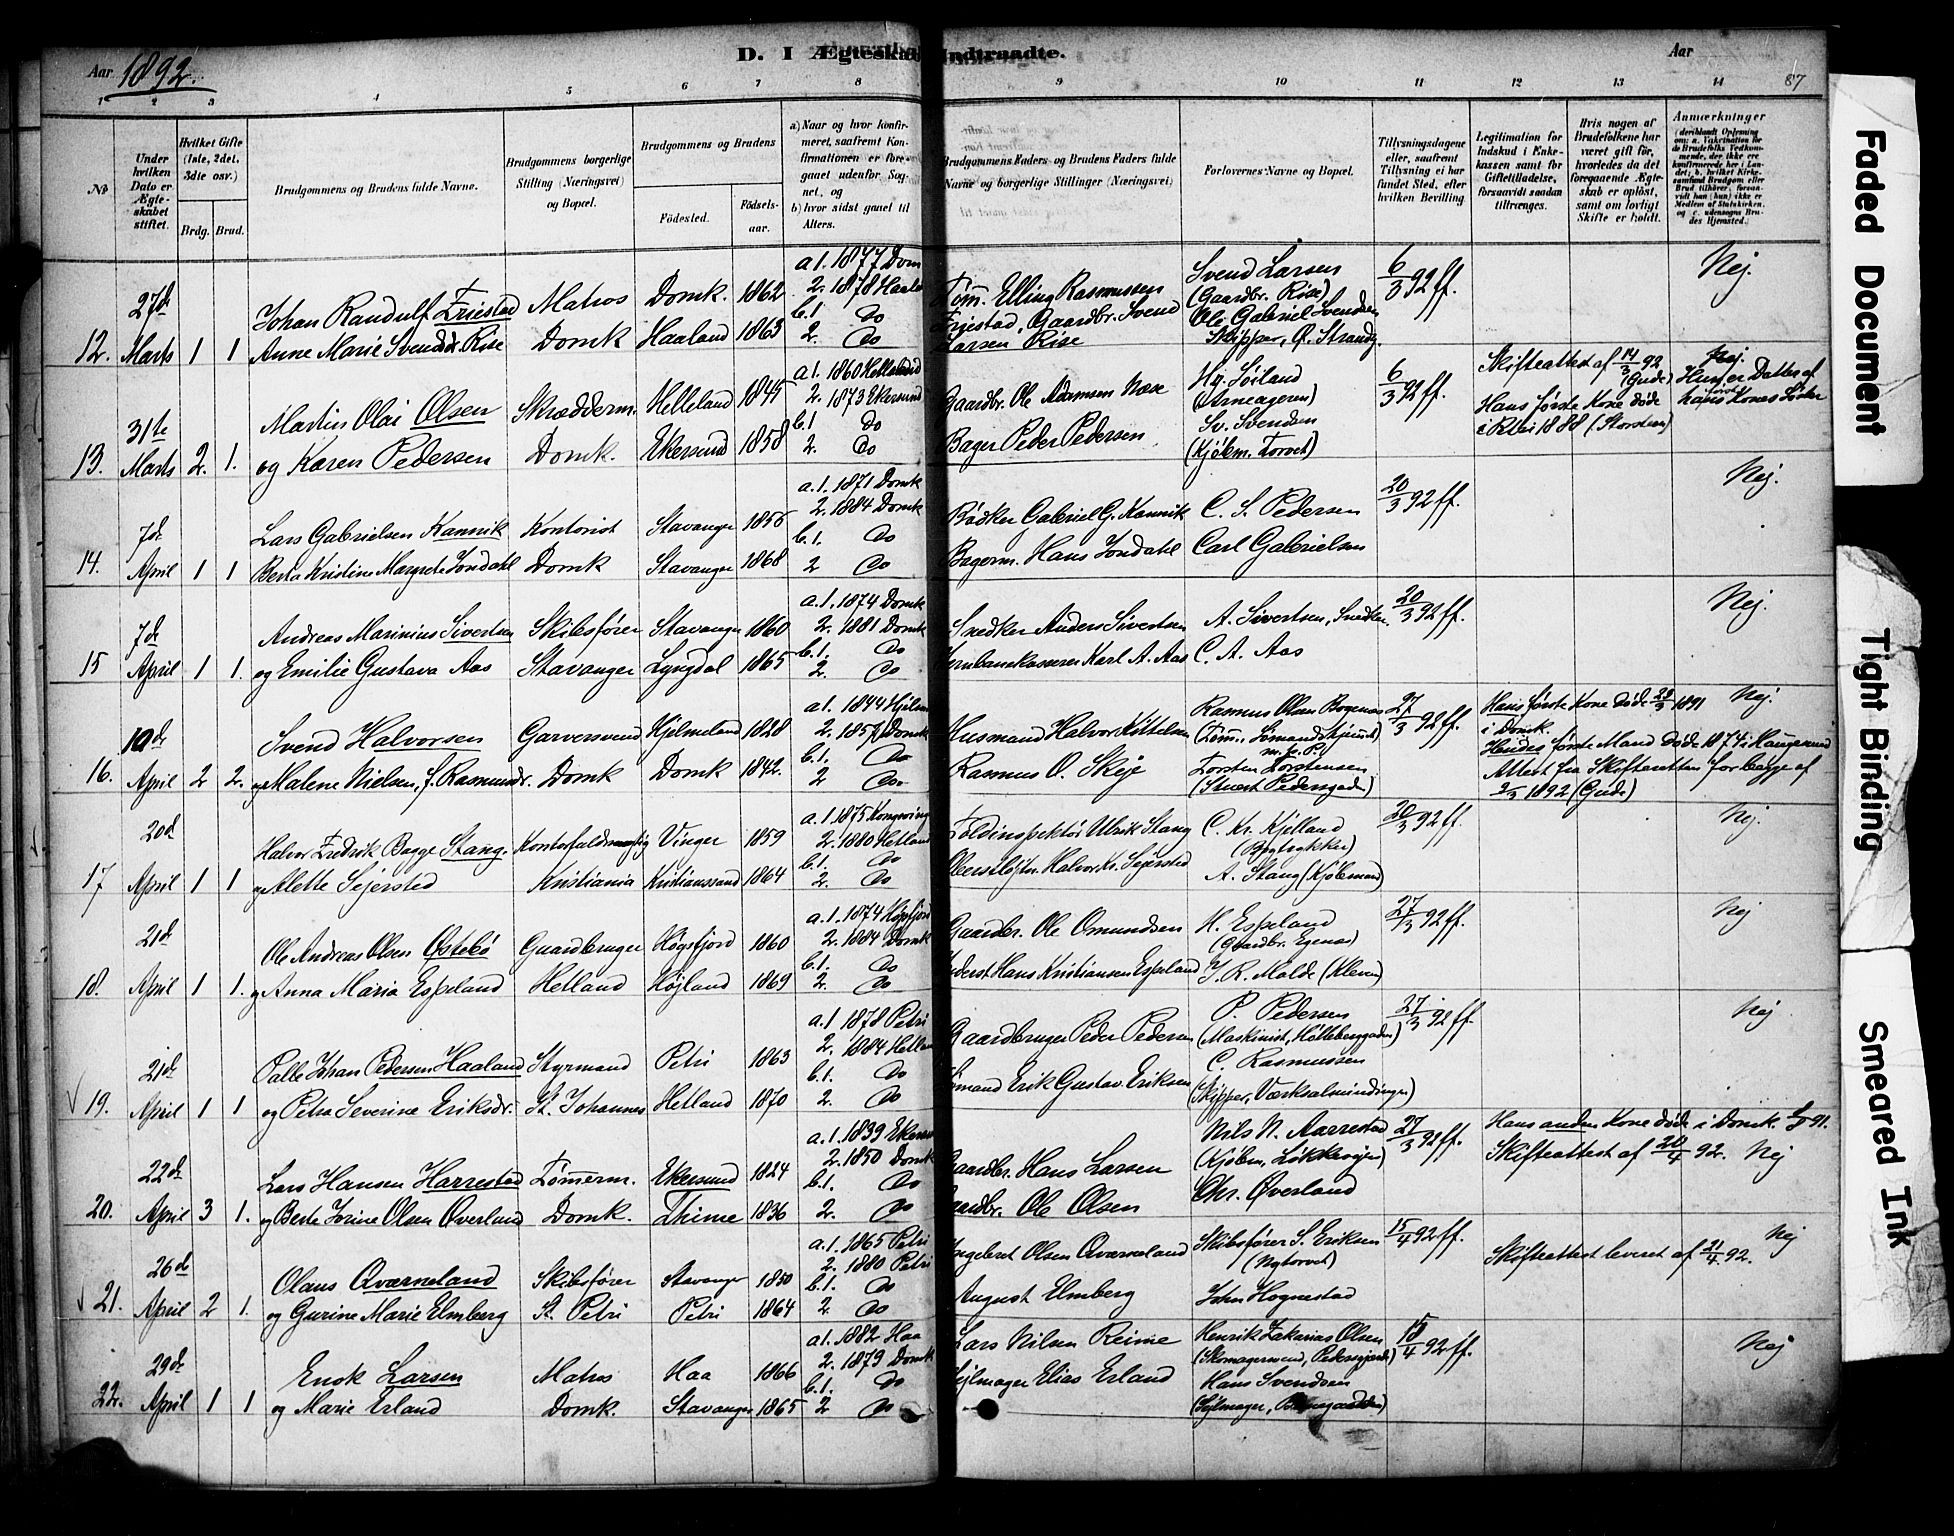 D. I Ægteskab Indtraadte.
Aar 1892.
Aar
87
1 2 3 4 5 6 7 8 9 10 11 12 13 14
No
Under hvilken Dato er Ægteskabet stiftet.
Hvilket Gifte (1ste, 2det, 3die osv.)
Brdg. Brud.
Brudgommens og Brudens fulde Navne.
Brudgommens borgerlige Stilling (Næringsvei) og Bopæl.
Brudgommens og Brudens
Fødested.
Fødselsaar.
a) Naar og hvor konfirmeret, saafremt Konfirmationen er foregaaet udenfor Sognet, og
b) hvor sidst gaaet til Alters.
Brudgommens Faders og Brudens Faders fulde Navne og borgerlige Stillinger (Næringsvei)
Forlovernes Navne og Bopæl.
Tillysningsdagene eller, saafremt Tillysning ei har fundet Sted, efter hvilken Bevilling.
Legitimation for Indskud i Enkekassen samt for Giftetilladelse, forsaavidt saadan tiltrænges.
Hvis nogen af Brudefolkene har været gift før, hvorledes da det foregaaende Ægteskab er opløst, samt om lovligt Skifte er holdt.
Anmærkninger
12. 27de Marts 1 1
Johan Randulf Friestad
Anne Marie Svendsdr. Rise
Matros
Domk
Domk. 1862
Haaland 1863
a 1. 1877 Dom
2. 1878 Haala
b. 1 Do
2. Do
Tøm. Elling Rasmussen
Friestad, Gaardbr. Svend
Larsen Rise
Svend Larsen
(Gaardbr. Rise)
Ole Gabriel Svendsen
Skipper, Ø. Strandg.
6/3 92 ff.
Nej.
13. 31te Marts 2. 1.
Martin Olai Olsen
og Karen Pedersen
Skrædderm.
Domk.
Helleland 1845
Ekersund 1858
a 1. 1860 Helleland
2. 1873 Ekersund
b. 1 Do
2. Do
Gaardbr. Ole Adamsen Næse
Bager Peder Pedersen
Hj. Søiland
(Arneageren)
Sv. Svendsen
(Kjøbm. Torvet)
6/3 92 ff.
Skifteattest af 14/3 92
(Gude)
Hans første Kone døde
Nej.
Hun er Datter af
hans Kones Søster
14. 7de April 1 1
Lars Gabrielsen Kannik
Berta Kristine Margrete Jondahl
Kontorist
Domk
Stavanger 1856
Stavanger 1868
a. 1. 1871 Domk
2. 1884 Domk
b. 1. Do
2 Do
Bødker Gabriel G. Kannik
Bagerm. Hans Jondahl
C. S. Pedersen
Carl Gabrielsen
20/3 92 ff.
Nej.
15 7de April 1 1.
Andreas Marinius Sivertsen
og Emilie Gustava Aas
Skibsfører
Stavanger
Stavanger 1860
Lyngdal 1865
a. 1. 1874 Domk
2. 1881 Domk
b. 1. Do
2. Do
Snedker Anders Sivertsen
Jernbanekasserer Karl A. Aas
A. Sivertsen, Snedker
C. A. Aas
20/3 92 ff.
Nej.
16. 10de April 2 2.
Svend Halvorsen
og Malene Nielsen, f. Rasmusdr.
Garversvend
Domk
Hjelmeland 1828
Domk 1842.
a 1. 1844 Hjelm
2. 1857 Domk
b. 1. Do
2 Do
Husmand Halvor Kittelsen
Rasmus O. Skeje
Rasmus Olsen
Torsten Torstensen
27/3 92 ff.
Hans første Kone døde 29/3 1891
i Domk.
Hendes første Mand døde 1874 i Haugesund
Attest fra Skifteretten for begge af
1892 (Gude)
Nej.
17 20de April 1 1
Halvor Fredrik Bagge Stang.
og Alette Sejersted
Kontorfuldmægtig
Kristiania
Vinger 1859
Kristianssand 1864
a. 1. 1875 Kongsving
2. 1880 Hetland
b. 1. Do
2. Do
Toldinspektør Ulrik Stang
Oberstløjtn. Halvor Kr. Sejersted
C. Kr. Kjelland
(Bogtrykker)
A. Stang (Kjøbmand)
20/3 92 ff.
Nej.
18. 21de April 1 1.
Ole Andreas Olsen Østebø
og Anna Maria Espeland
Gaardbruger
Hetland
Høgsfjord 1860
Højland 1869
a. 1. 1874 Høgsfjord
2. 1884 Domk
b. 1. Do
2. Do
Gaardbr. Ole Omundsen
Inderst. Hans Kristiansen Espeland
H. Espeland
(Gaardbr. Egenæs)
J. R. Malde (Kleven)
27/3 92 ff.
Nej
19. 21de April 1 1
Palle Johan Pedersen Haaland
og Petra Severine Eriksdr.
Styrmand
St. Johannes
Petri 1863
Hetland 1870
a. 1 1878 Petri
2. 1884 Hetlan
b. 1. Do
2. Do
Gaardbruger Peder Pedersen
Sømand Erik Gustav Eriksen
P. Pedersen
(Maskinist, Holteberggaden)
C. Rasmussen
(Skipper, Værksalmindingen)
27/3 92 ff.
Nej
20. 22de April 3 1.
Lars Hansen Harrestad
og Berte Jorine Olsen Øverland
Tømmerm.
Domk.
Ekersund 1824
Thime 1836
a. 1. 1839 Ekers
2. 1850 Domk
b. 1. Do
2. Do
Gaardbr. Hans Larsen
Gaardbr. Ole Olsen
Nils N. Aarrestad
(Kjøbm, Løkkevejen)
Chr. Øverland
27/3 92 ff.
Hans anden Kone døde i Domk. 91.
Skifteattest af 20/4 92.
Nej
21. 26de April 2 1.
Olaus Qværneland
og Gurine Marie Elmberg
Skibsfører
St. Petri
Stavanger 1850
Petri 1864
a. 1. 1865 Petri
2. 1880 Petri
b. 1. Do
2 Do
Ingebret Olsen Qværneland
August Elmberg
Skibsfører S. Eriksen
(Nytorvet)
John Hognestad
15/4 92 ff.
Skifteattest leveret af 21/4 92.
Nej
22. 29de April 1 1
Enok Larsen
og Marie Erland
Matros
Domk.
Haa 1866
Stavanger 1865
a 1. 1882 Haa
2. 1879 Domk
b. 1. Do
2 Do
Lars Nilsen Reime
Sejlmager Elias Erland
Henrik Zakarias Olsen
(Skomagersvend, Pedersgjerdet)
Hans Svendsen
15/4 92 ff.
Nej
Faded Document
Tight Binding
Smeared Ink